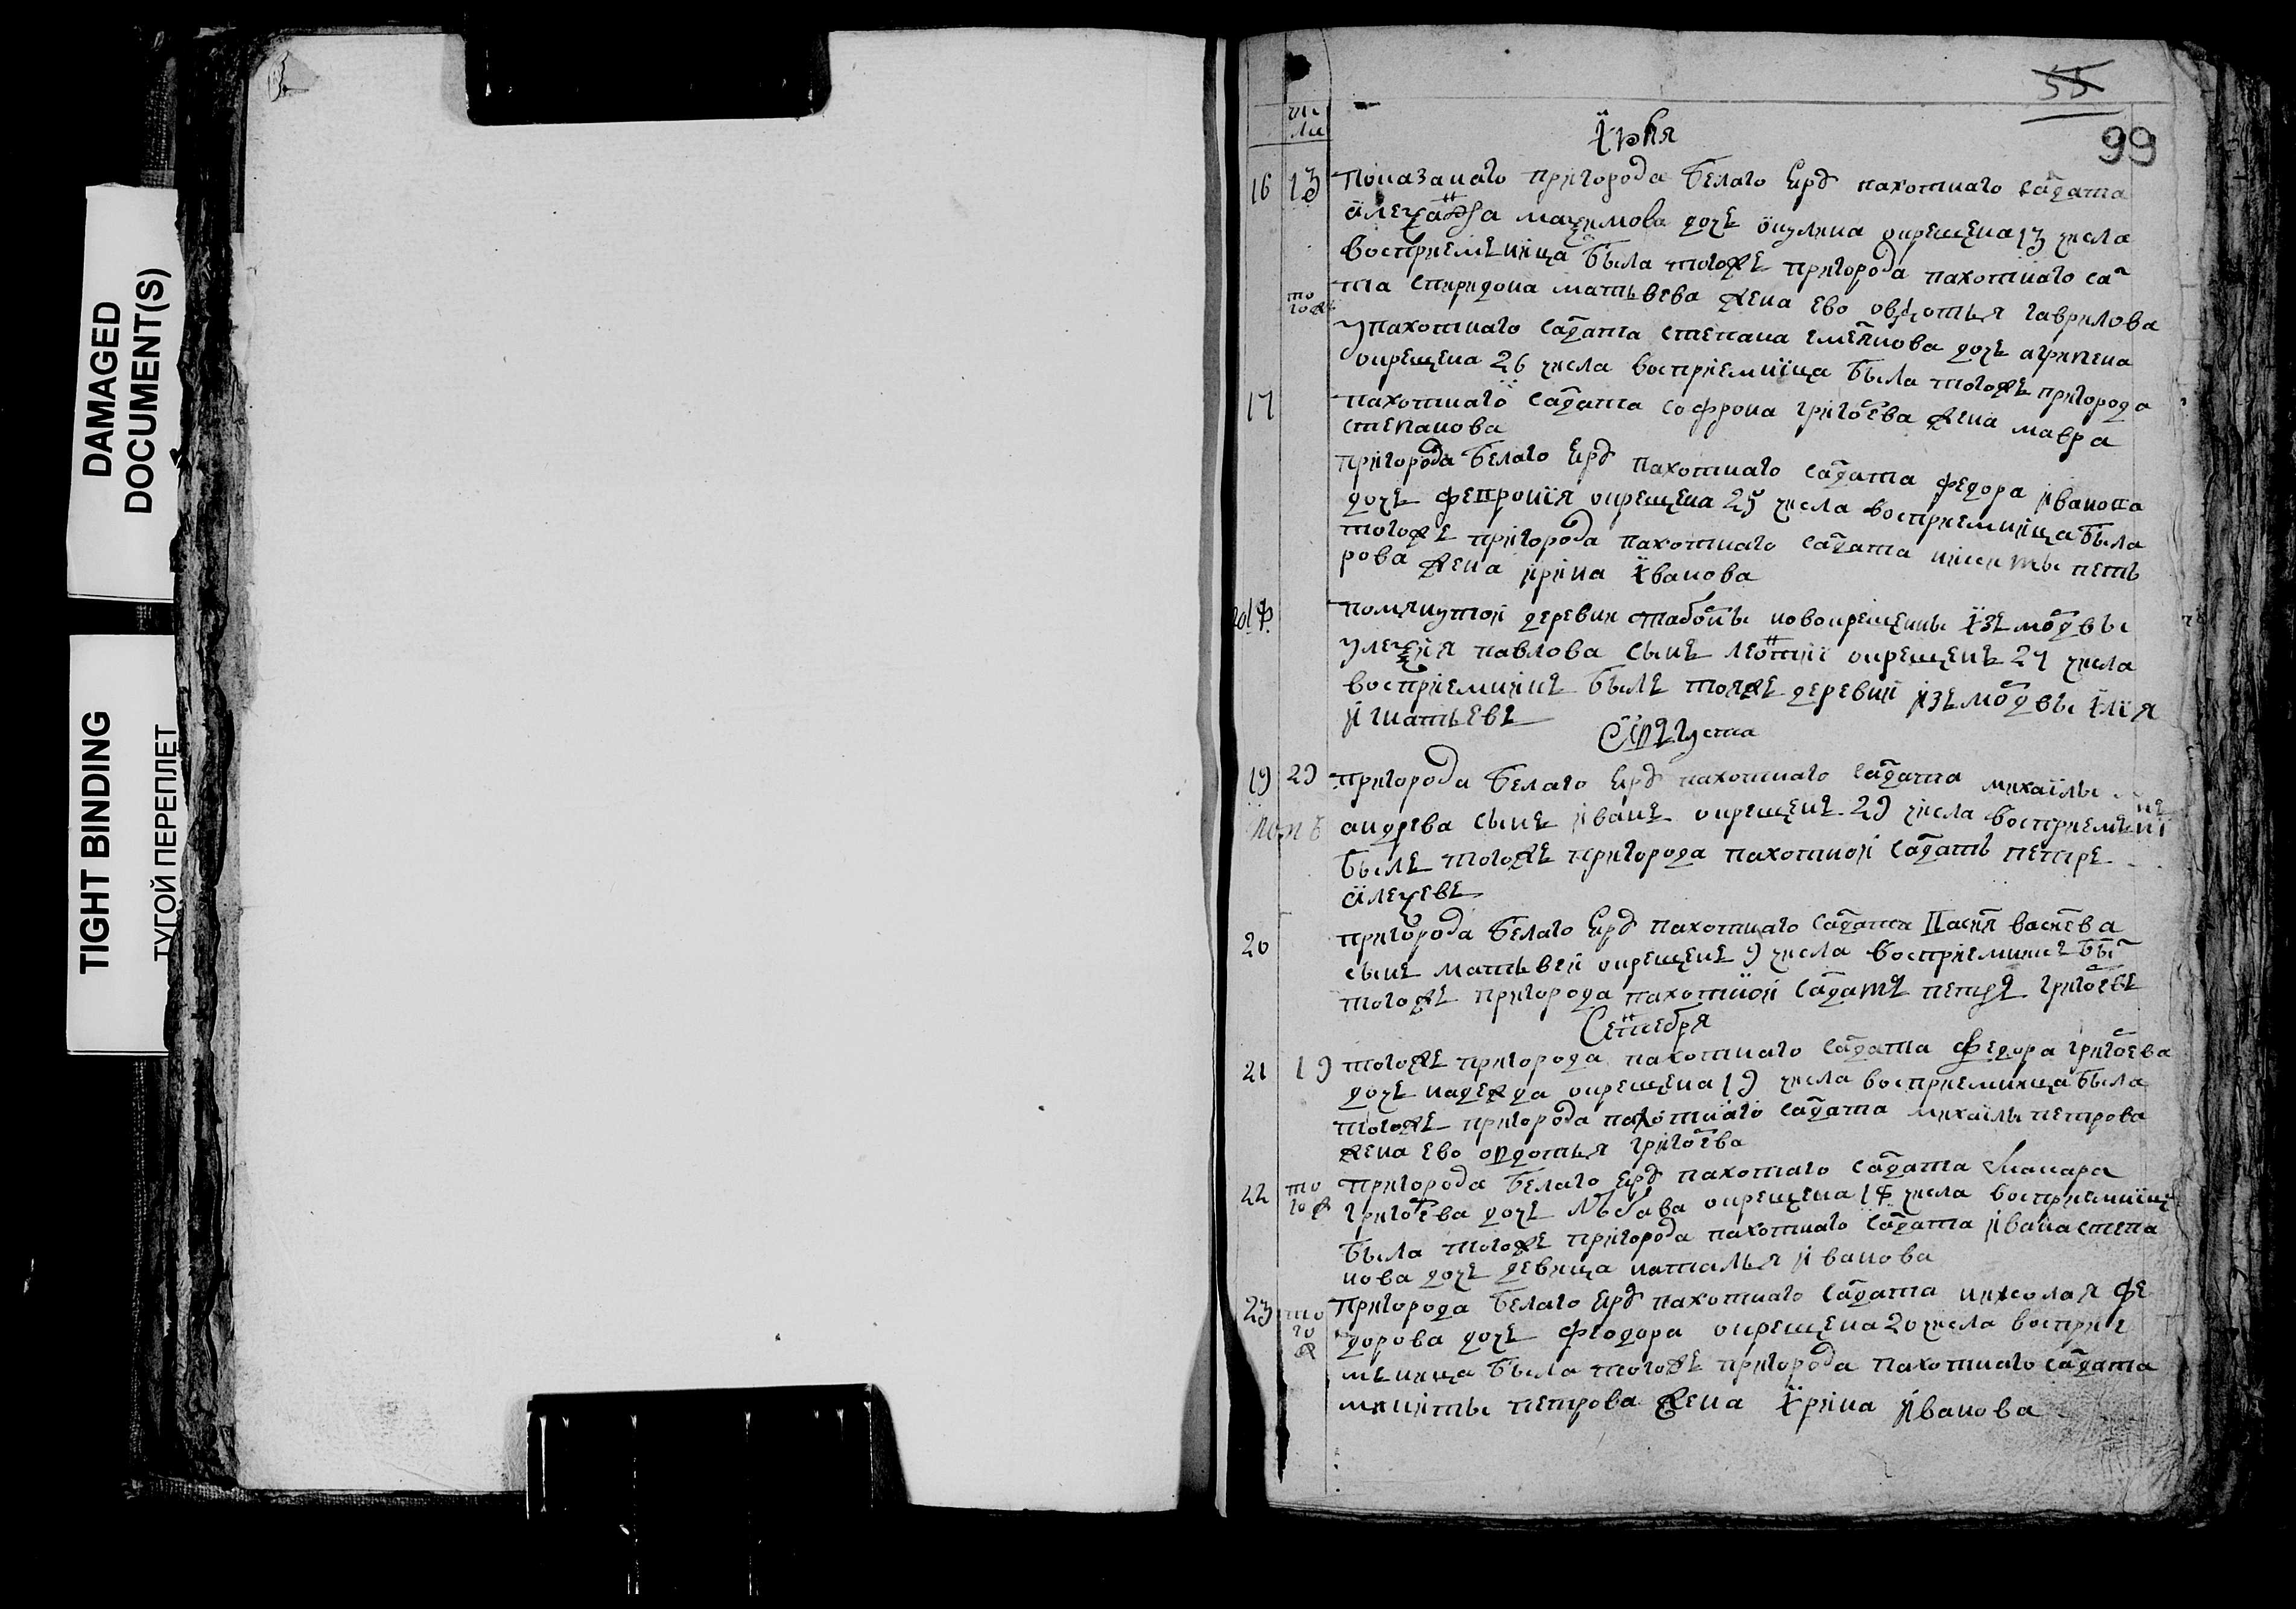 DAMAGED
DOCUMENT(S)
TIGHT BINDING
ТУГОЙ ПЕРЕПЛЕТ
55
99
чи
ли
Июня
16 13 показанаго пригорода белаго пахотнаго садата
маѯимова дочь окулина окрещена 13 числа
восприемьница была тогожъ пригорода пахотнаго са
та спиридона матьвева жена ево овдотья гаврилова
то
гож
упахотнаго садата степана емеянова дочь агрипена
окрещена 26 числа восприемница была тогожъ пригорода
17 пахотнаго садата софрона григоева жена мавра
степанова
пригорода белаго пахотнаго садата федора иванова
дочь фепрония окрещена 25 числа восприемница была
тогожъ пригорода пахотнаго садата петь
рова жена ирина иванова
помянутои деревни новокрещены изъ модвы
павлова сынъ леотии окрещенъ 27 числа
восприемникъ былъ тояжъ деревни изъ модвы илия
игнатьевъ
Августа
19 29 пригорода белаго пахотнаго садата михаилы
андрева сынъ иванъ окрещенъ 29 числа
былъ тогожъ пригорода пахотнои садатъ петръ
алеѯевъ
20 пригорода белаго пахотнаго садата васиева
сынъ матьвеи окрещенъ 9 числа восприемникъ бы
тогожъ пригорода пахотнои садатъ петръ григоевъ
Сетебря
21 19 тогожъ пригорода пахотнаго садата федора григоева
дочь надежда окрещена 19 числа восприемница была
тогожъ пригорода пахотнаго садата михаилы петрова
жена ево овдотья григоева
22 то
гож
пригорода белаго пахотнаго садата макара
григоева дочь окрещена числа восприемница
была тогожъ пригорода пахотнаго садата ивана степа
нова дочь девица наталья иванова
23 то
го
ж
пригорода белаго пахотнаго садата николая фе
дорова дочь феодора окрещена 20 числа восприе
мьница была тогожъ пригорода пахотнаго садата
микиты петрова жена ирина иванова